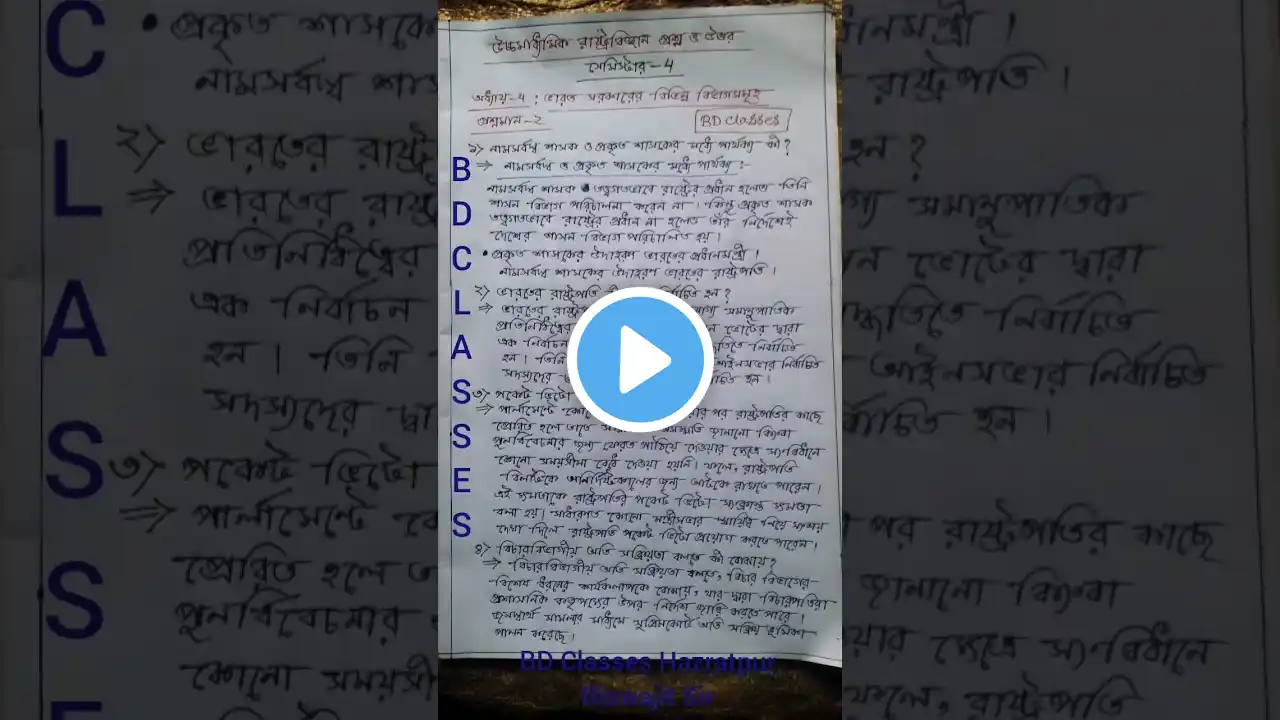 উচ্চমাধ্যমিক রাষ্ট্রবিজ্ঞান প্রশ্ন ও উত্তর
সেমিস্টার-4
অধ্যায়-4 : ভারত সরকারের বিভিন্ন বিভাগসমূহ
প্রশ্নমান-2
BD Classes
১) নামসর্বস্ব শাসক ও প্রকৃত শাসকের মধ্যে পার্থক্য কী?
⇒ নামসর্বস্ব ও প্রকৃত শাসকের মধ্যে পার্থক্য :-
নামসর্বস্ব শাসক তত্ত্বগতভাবে রাষ্ট্রের প্রধান হলেও তিনি
শাসন বিভাগ পরিচালনা করেন না। কিন্তু প্রকৃত শাসক
তত্ত্বগতভাবে রাষ্ট্রের প্রধান না হলেও তাঁর নির্দেশেই
দেশের শাসন বিভাগ পরিচালিত হয়।
• প্রকৃত শাসকের উদাহরণ ভারতের প্রধানমন্ত্রী।
নামসর্বস্ব শাসকের উদাহরণ ভারতের রাষ্ট্রপতি।
২) ভারতের রাষ্ট্রপতি হন?
⇒ ভারতের সমানুপাতিক
প্রতিনিধিত্বের ভোটের দ্বারা
এক নির্বাচন নির্বাচিত
হন। তিনি আইনসভার নির্বাচিত
সদস্যদের হন।
৩) পকেট ভিটো
⇒ পার্লামেন্টে পর রাষ্ট্রপতির কাছে
প্রেরিত হলে তাতে জানানো কিংবা
পুনর্বিবেচনার জন্য ফেরত পাঠিয়ে দেওয়ার ক্ষেত্রে সংবিধানে
কোনো সময়সীমা বেঁধে দেওয়া হয়নি। ফলে, রাষ্ট্রপতি
বিলটিকে অনির্দিষ্টকালের জন্য আটকে রাখতে পারেন।
এই ক্ষমতাকে রাষ্ট্রপতির পকেট ভিটো সংক্রান্ত ক্ষমতা
বলা হয়। সাধারণত কোনো মন্ত্রীসভার স্থায়িত্ব নিয়ে সংশয়
দেখা দিলে রাষ্ট্রপতি পকেট ভিটো প্রয়োগ করতে পারেন।
৪) বিচারবিভাগীয় অতি সক্রিয়তা বলতে কী বোঝায়?
⇒ বিচারবিভাগীয় অতি সক্রিয়তা বলতে, বিচার বিভাগের
বিশেষ ধরনের কার্যকলাপকে বোঝায়, যার দ্বারা বিচারপতিরা
প্রশাসনিক কর্তৃপক্ষের উপর নির্দেশ জারি করতে পারে।
জনস্বার্থ মামলার মাধ্যমে সুপ্রিমকোর্ট অতি সক্রিয় ভূমিকা
পালন করেছে।
BD CLASSES
BD Classes Hazratpur
Biswajit Sir